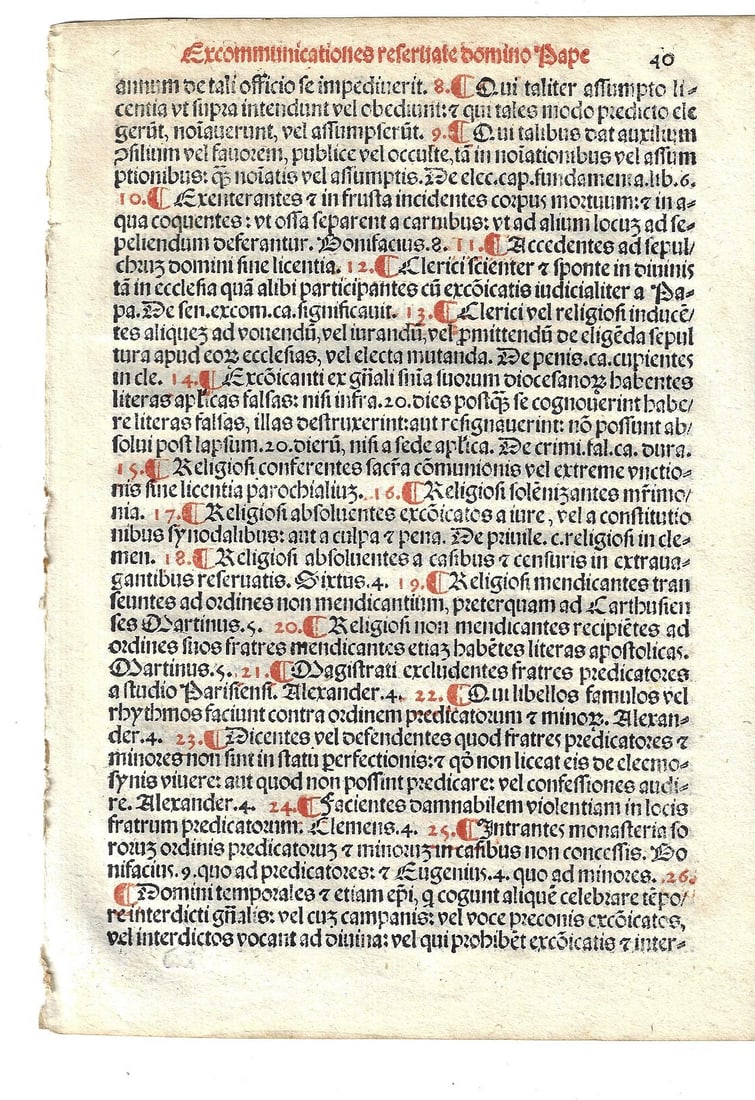 Excommunicationes reseruate domino Pape 40
annum de tali officio se impediuerit. 8. ¶ Qui taliter assumpto li⸗
centia vt supra intendunt vel obediunt: ⁊ qui tales modo predicto ele
gerũt, noĩauerunt, vel assumpserũt. 9. ¶ Qui talibus dat auxilium
ꝯsilium vel fauorem, publice vel occulte, tã in noĩationibus vel assum
ptionibus: q̃ꝫ noĩatis vel assumptis. De elec.cap.fundamenta.lib.6.
10. ¶ Exenterantes ⁊ in frusta incidentes corpus mortuum: ⁊ in a⸗
qua coquentes: vt ossa separent a carnibus: vt ad alium locuꝫ ad se⸗
peliendum deferantur. Bonifacius.8. 11. ¶ Accedentes ad sepul/
chruꝫ domini sine licentia. 12. ¶ Clerici scienter ⁊ sponte in diuinis
tã in ecclesia quã alibi participantes cũ excõicatis iudicialiter a Pa⸗
pa. De sen.excom.ca.significauit. 13. ¶ Clerici vel religiosi inducẽ/
tes aliqueꝫ ad vouendũ, vel iurandũ, vel ꝑmittendũ de eligẽda sepul
tura apud eoꝝ ecclesias, vel electa mutanda. De penis.ca.cupientes
in cle. 14. ¶ Excõicanti ex gñali sñia suorum diocesanoꝝ habentes
literas aplicas falsas: nisi infra.20.dies postq̃ꝫ se cognouerint habe/
re literas falsas, illas destruxerint: aut resignauerint: nõ possunt ab/
solui post lapsum.20.dierũ, nisi a sede aplica. De crimi.fal.ca. dura.
15. ¶ Religiosi conferentes sacrã cõmunionis vel extreme vnctio⸗
nis sine licentia parochialiuꝫ. 16. ¶ Religiosi solẽnizantes mr̃imo/
nia. 17. ¶ Religiosi absoluentes excõicatos a iure, vel a constitutio
nibus synodalibus: aut a culpa ⁊ pena. De priuile. c.religiosi in cle⸗
men. 18. ¶ Religiosi absoluentes a casibus ⁊ censuris in extraua⸗
gantibus reseruatis. Sixtus.4. 19. ¶ Religiosi mendicantes tran
seuntes ad ordines non mendicantium, preterquam ad Carthusien
ses Martinus.5. 20. ¶ Religiosi non mendicantes recipiẽtes ad
ordines suos fratres mendicantes etiaꝫ habẽtes literas apostolicas.
Martinus.5. 21. ¶ Magistrati excludentes fratres predicatores
a studio Parisiensi. Alexander.4. 22. ¶ Qui libellos famulos vel
rhythmos faciunt contra ordinem predicatorum ⁊ minoꝝ. Alexan⸗
der.4. 23. ¶ Dicentes vel defendentes quod fratres predicatores ⁊
minores non sint in statu ꝑfectionis: ⁊ qõ non liceat eis de elecmo⸗
synis viuere: aut quod non possint predicare: vel confessiones audi⸗
re. Alexander.4. 24. ¶ Facientes damnabilem violentiam in locis
fratrum predicatorum: Clemens.4. 25. ¶ Intrantes monasteria so
roruꝫ ordinis predicatoruꝫ ⁊ minoruꝫ in casibus non concessis. Bo
nifacius.9.quo ad predicatores: ⁊ Eugenius.4.quo ad minores. 26.
¶ Domini temporales ⁊ etiam ep̃i, q cogunt aliquẽ celebrare tẽpo/
re interdicti gñalis: vel cuꝫ campanis: vel voce preconis excõicatos,
vel interdictos vocant ad diuina: vel qui prohibẽt excõicatis ⁊ inter⸗